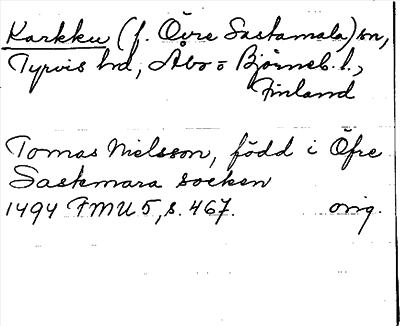 Karkku (f. Övre Sastamala) sn,
Tyrvis hd, Åbo o Björneb. l.,
Finland
Tomas Nielsson, född i Öfre
Saskmara socken
1494 FMU 5, s. 467. orig.